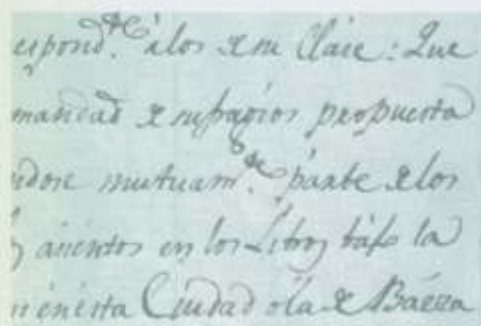 espond.te a los de su Clase: Que
mandad de sufragios propuesta
ndose mutuam.te parte de los
asientos en los Libros bajo la
en esta Ciudad o la de Baeza